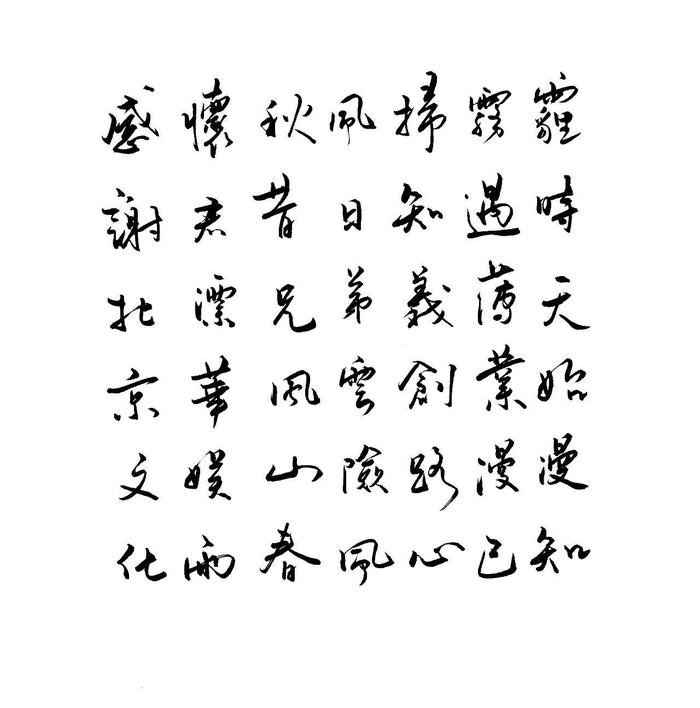 感懷秋風掃霧霾
謝君昔日知遇時
北漂兄弟義薄天
京華風雲創業始
文娛山險路漫漫
化雨春風心已知